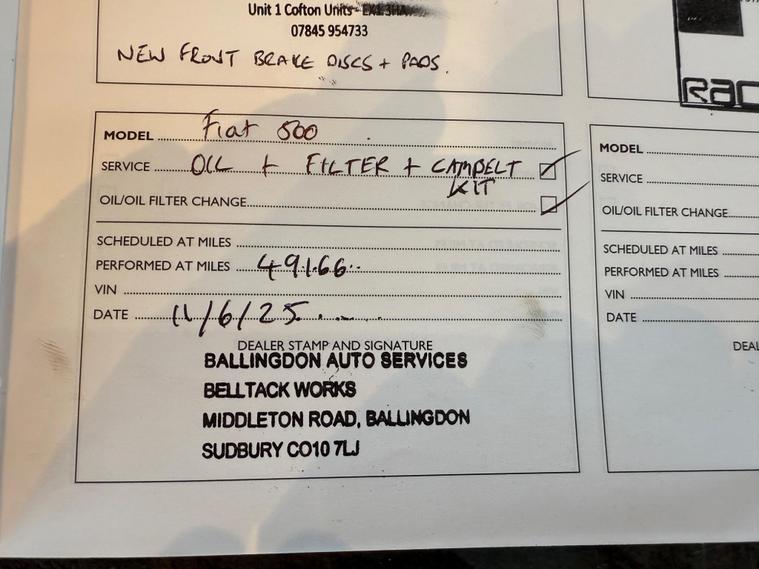 Unit 1 Cofton Units-
07845 954733
NEW FRONT BRAKE DISCS + PADS.
MODEL Fiat 500
SERVICE OIL + FILTER + CAMBELT
KIT
OIL/OIL FILTER CHANGE
SCHEDULED AT MILES
PERFORMED AT MILES 49166
VIN
DATE 11/6/25
DEALER STAMP AND SIGNATURE
BALLINGDON AUTO SERVICES
BELLTACK WORKS
MIDDLETON ROAD, BALLINGDON
SUDBURY CO10 7LJ
MODEL
SERVICE
OIL/OIL FILTER CHANGE
SCHEDULED AT MILES
PERFORMED AT MILES
VIN
DATE
DEAL